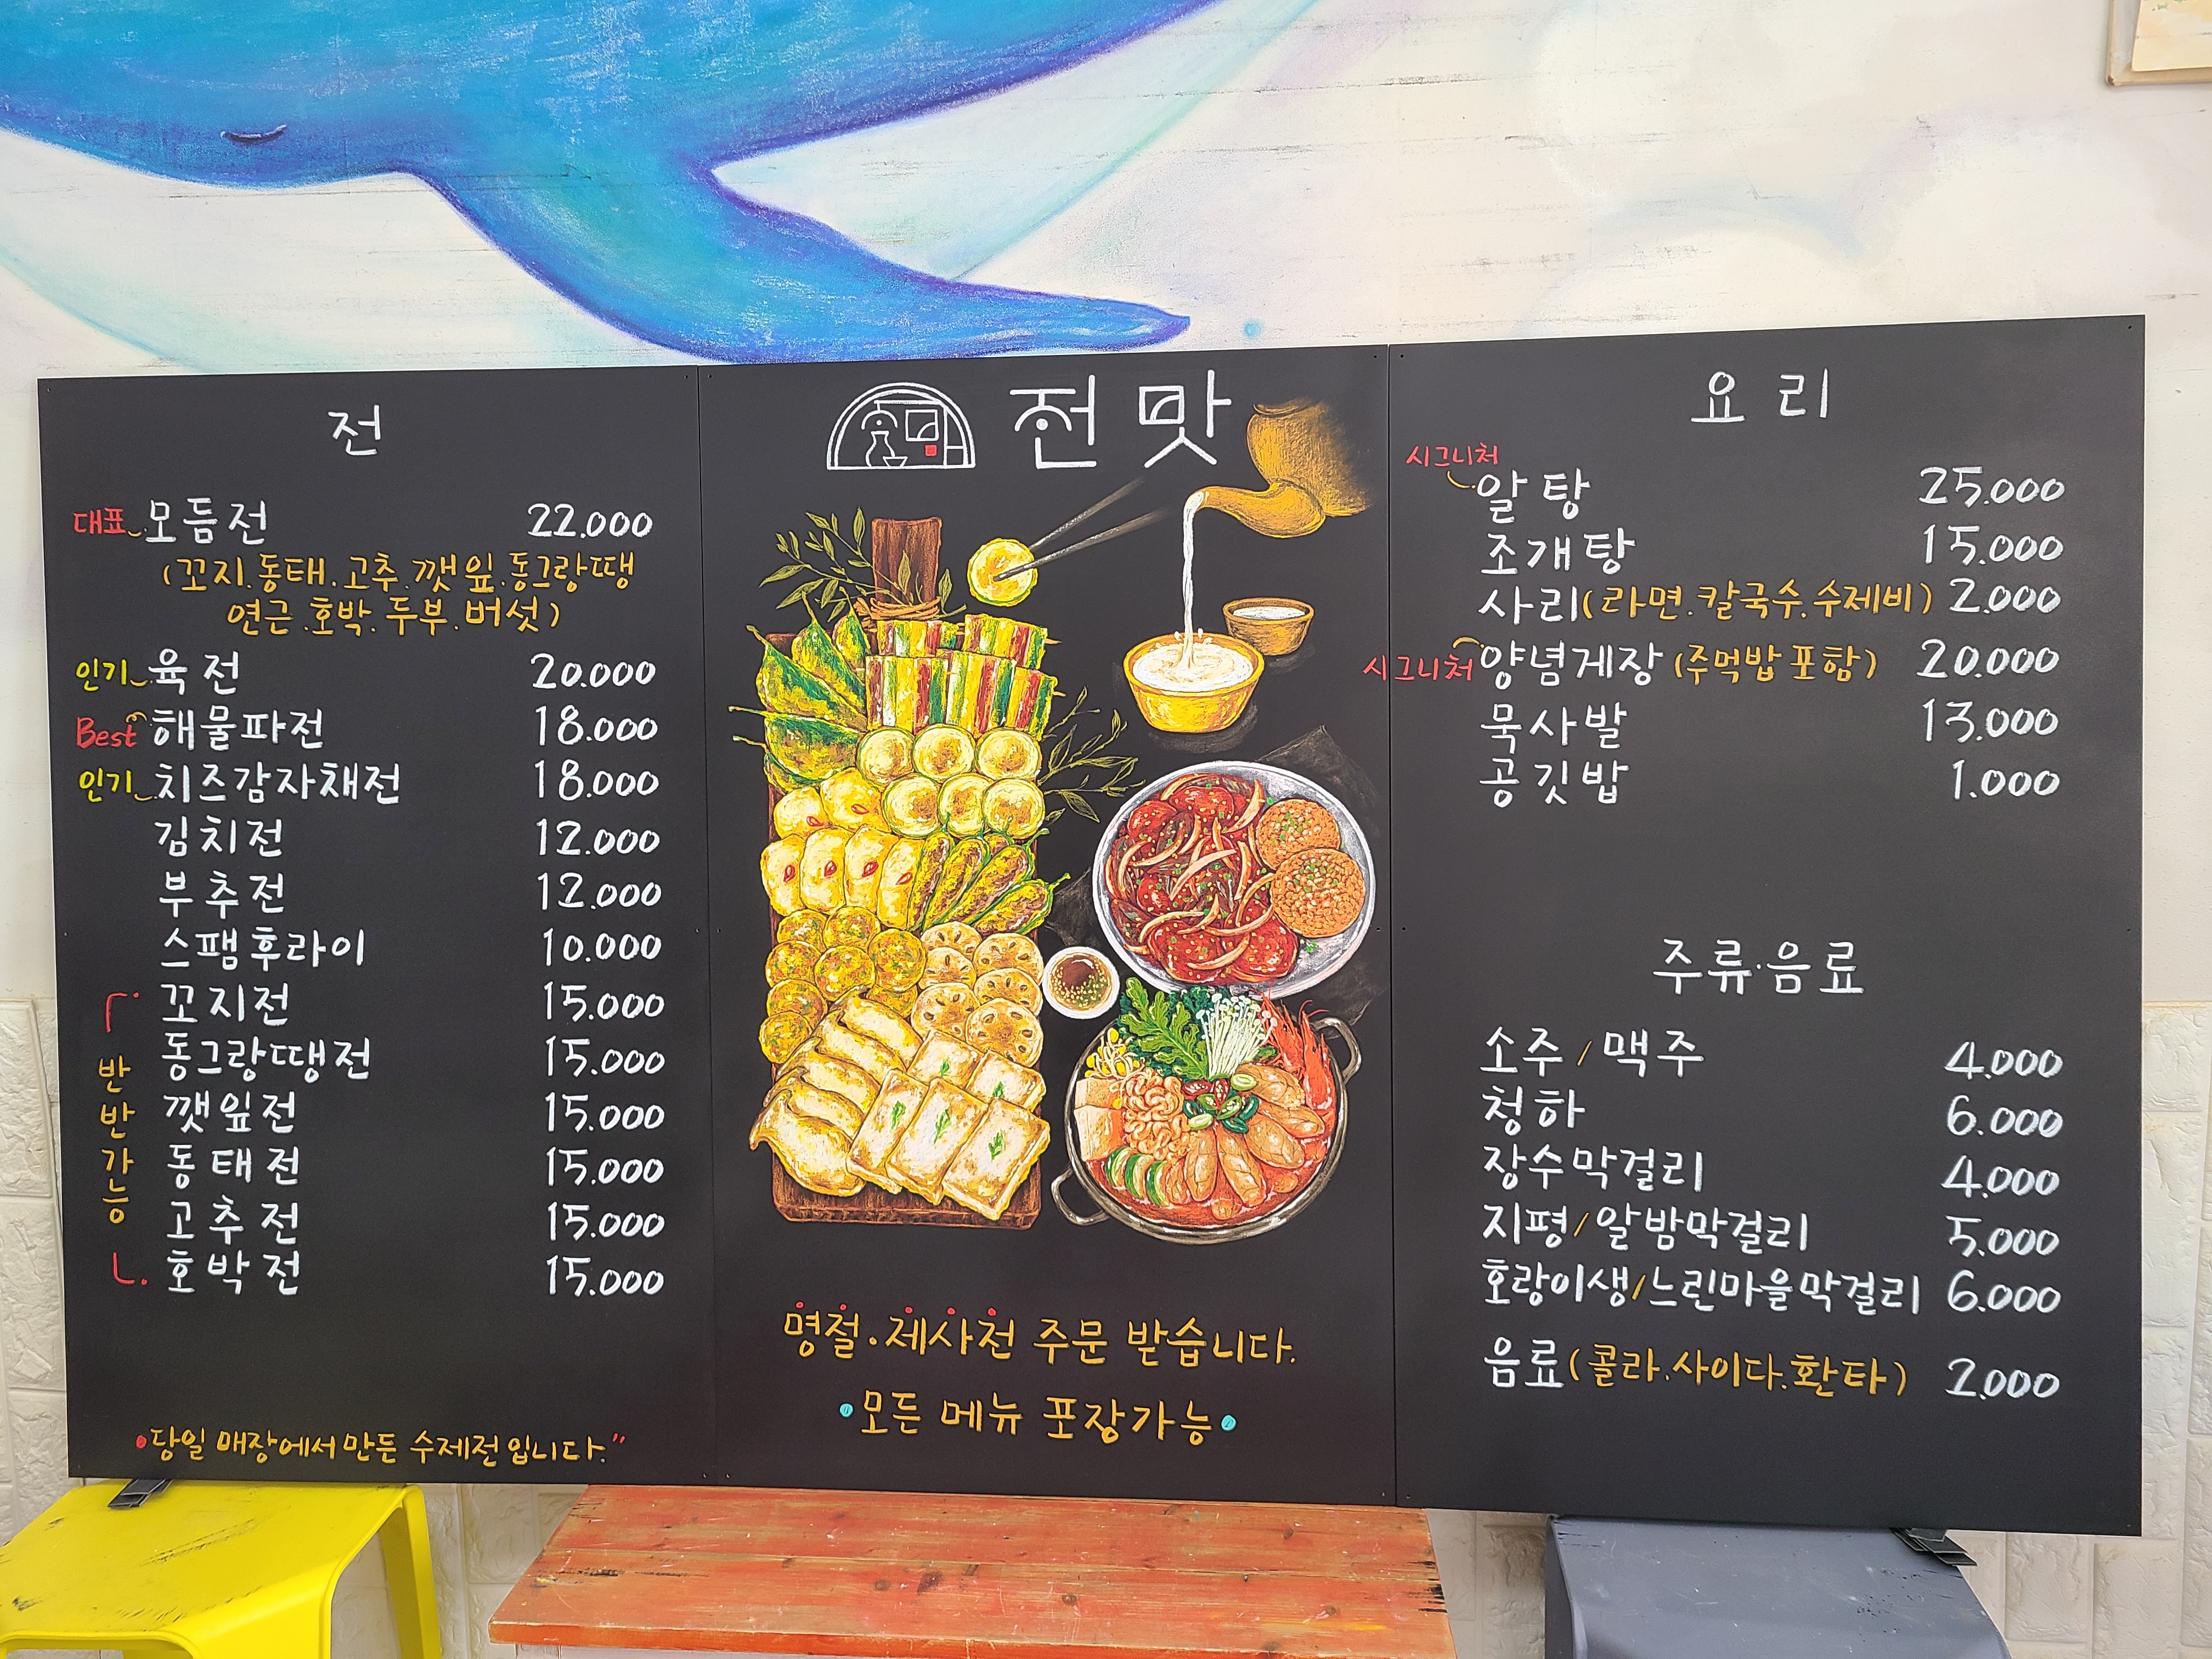 전
대표 모듬전 22.000
(꼬지.동태.고추.깻잎.동그랑땡
연근.호박.두부.버섯)
인기 육전 20.000
Best 해물파전 18.000
인기 치즈감자채전 18.000
김치전 12.000
부추전 12.000
스팸후라이 10.000
꼬지전 15.000
동그랑땡전 15.000
깻잎전 15.000
동태전 15.000
고추전 15.000
호박전 15.000
반반가능
•당일 매장에서 만든 수제전입니다."
전맛
명절.제사전 주문 받습니다.
•모든 메뉴 포장가능•
요리
시그니처
알탕 25.000
조개탕 15.000
사리(라면.칼국수.수제비) 2.000
시그니처 양념게장 (주먹밥 포함) 20.000
묵사발 13.000
공깃밥 1.000
주류·음료
소주/맥주 4.000
청하 6.000
장수막걸리 4.000
지평/알밤막걸리 5.000
호랑이생/느린마을막걸리 6.000
음료(콜라.사이다.환타) 2.000